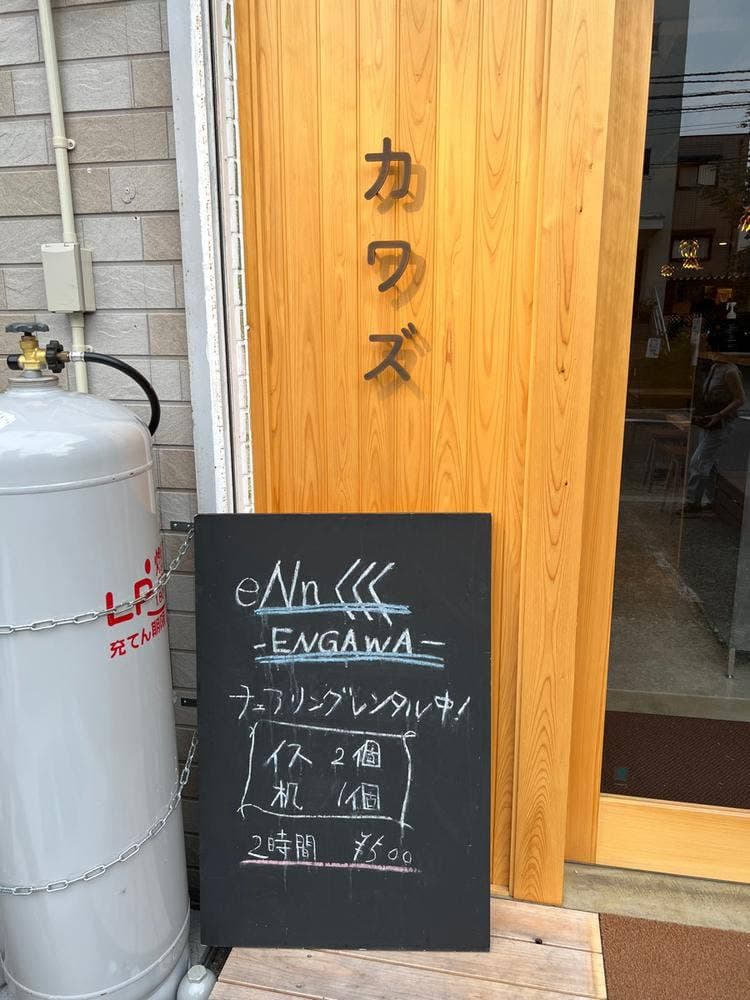 カワズ
eNn
-ENGAWA-
チェアリングレンタル中!
イス 2個
机 1個
2時間 ¥500
充てん期限